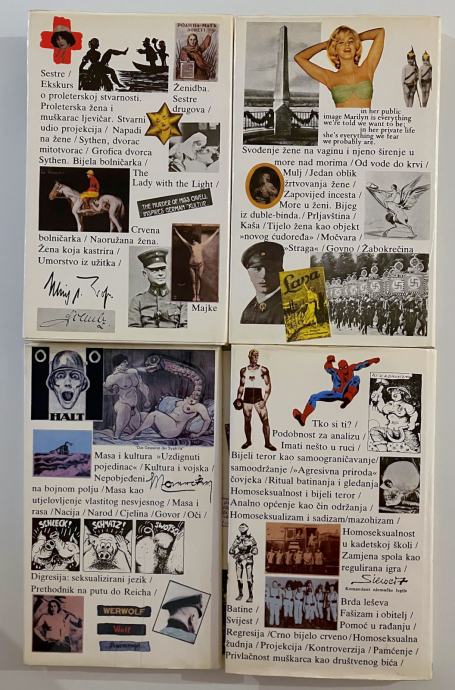 РОДИНА-МАТЬ
ЗОВЕТ!
Sestre /
Ekskurs
o proleterskoj stvarnosti.
Proleterska žena i
muškarac ljevičar. Stvarni
udio projekcija / Napadi
na žene / Sythen, dvorac
mitotvorac / Grofica dvorca
Sythen. Bijela bolničarka /
Ženidba.
Sestre
drugova /
The
Lady with the Light /
THE MURDER OF MISS CAVELL
INSPIRES GERMAN "KULTUR"
Crvena
bolničarka / Naoružana žena.
Žena koja kastrira /
Umorstvo iz užitka /
Majke
in her public
image Marilyn is everything
we're told we want to be;
in her private life
she's everything we fear
we probably are.
Svođenje žene na vaginu i njeno širenje u
more nad morima / Od vode do krvi /
Mulj / Jedan oblik
žrtvovanja žene /
Zapovijed incesta /
More u ženi. Bijeg
iz duble-binda. / Prljavština /
Kaša / Tijelo žena kao objekt
»novog ćudoređa« / Močvara /
»Straga« / Govno / Žabokrečina
Lana
HALT
Masa i kultura »Uzdignuti
pojedinac« / Kultura i vojska /
Nepobjeđeni
na bojnom polju / Masa kao
utjelovljenje vlastitog nesvjesnog / Masa i
rasa / Nacija / Narod / Cjelina / Govor / Oči /
SCHLECK!
SCHMATZ!
Digresija: seksualizirani jezik /
Prethodnik na putu do Reicha /
WERWOLF
Wolf
Tko si ti? /
Podobnost za analizu /
Imati nešto u ruci /
Bijeli teror kao samoograničavanje/
samoodržanje/ »Agresivna priroda«
čovjeka / Ritual batinanja i gledanja
Homoseksualnost i bijeli teror /
Analno općenje kao čin održanja /
Homoseksualizam i sadizam/mazohizam /
Homoseksualnost
u kadetskoj školi /
Zamjena spola kao
regulirana igra /
Batine /
Svijest /
Brda leševa
Fašizam i obitelj /
Pomoć u rađanju /
Regresija /Crno bijelo crveno / Homoseksualna
žudnja / Projekcija / Kontroverzija / Pamćenje /
Privlačnost muškarca kao društvenog bića /